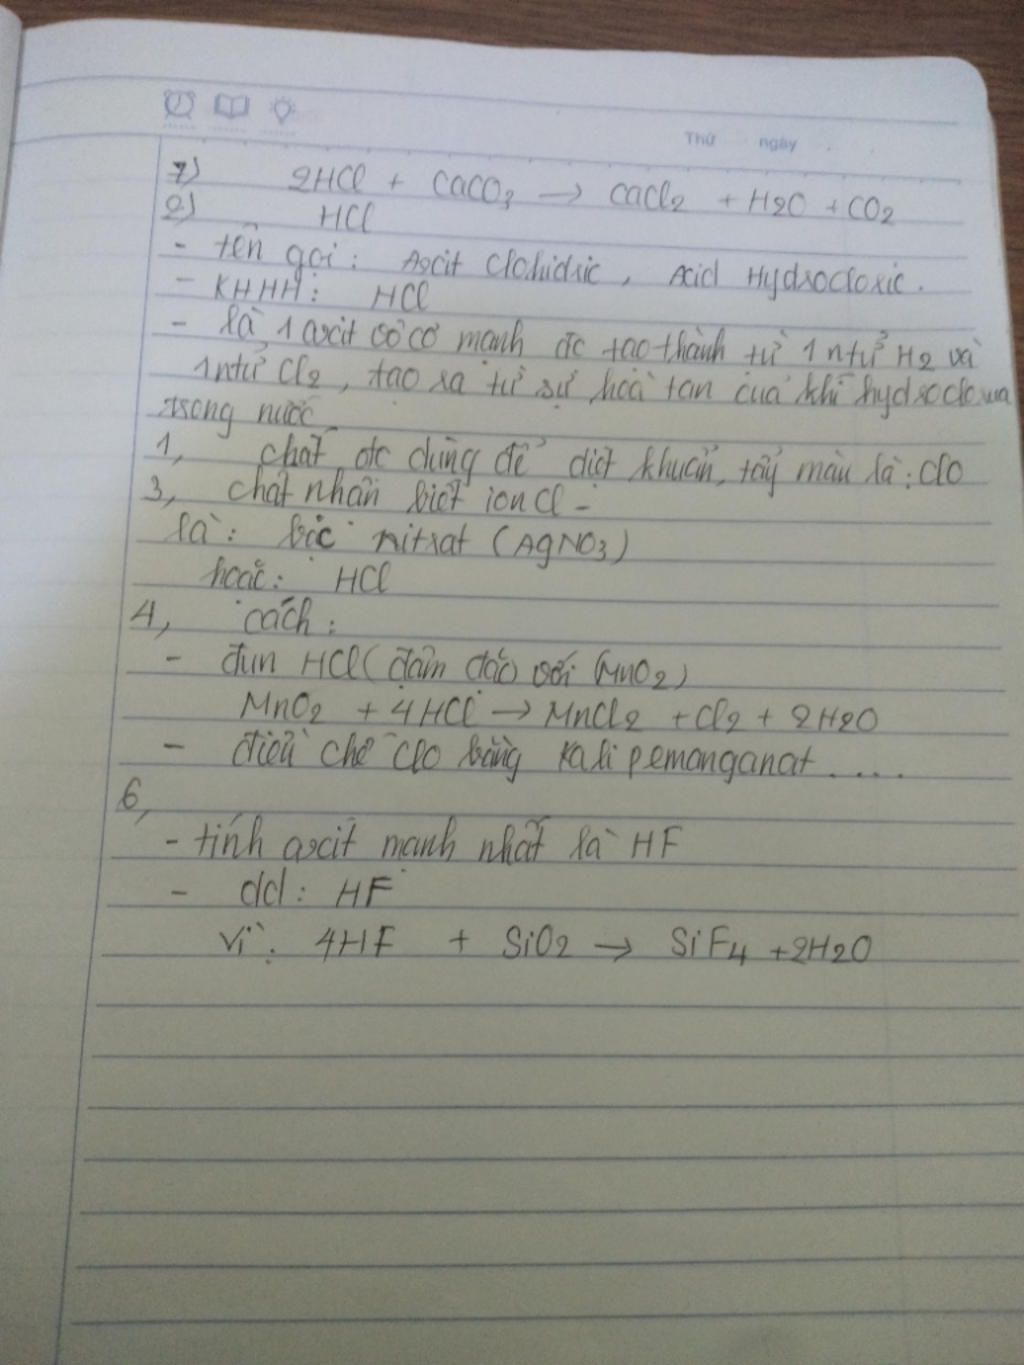 Thứ ngày
7) 2HCl + CaCO3 → CaCl2 + H2O + CO2
2) HCl
- tên gọi: Axit clohidric, Acid Hydrocloric.
- KHHH: HCl
- là 1 axit vô cơ mạnh đc tạo thành từ 1 ntử H2 và
1 ntử Cl2, tạo ra từ sự hoà tan của khí hydroclorua
trong nước
1, chất đc dùng để diệt khuẩn, tẩy màu là: clo
3, chất nhận biết ion Cl -
là: bạc nitrat (AgNO3)
hoặc: HCl
4, cách:
- đun HCl (đậm đặc) với (MnO2)
MnO2 + 4HCl → MnCl2 + Cl2 + 2H2O
- điều chế clo bằng kali pemanganat ....
6,
- tính axit mạnh nhất là HF
- dd: HF
Vì: 4HF + SiO2 → SiF4 + 2H2O